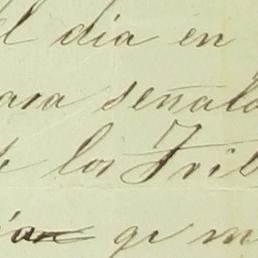 el dia en
para señala
de los Trib
qe